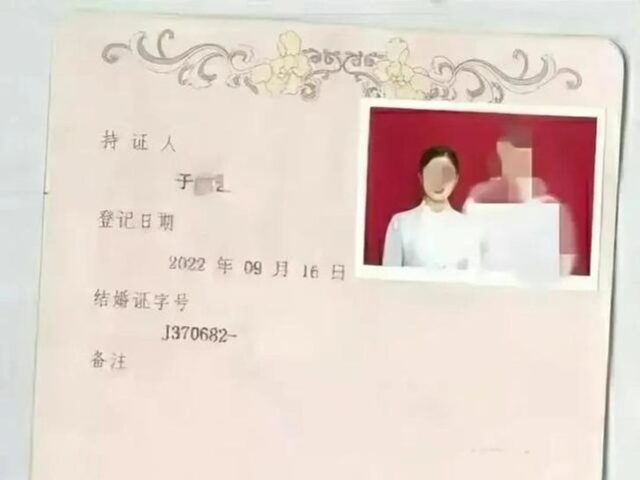 持证人
于
登记日期
2022 年 09 月 16 日
结婚证字号
J370682-
备注